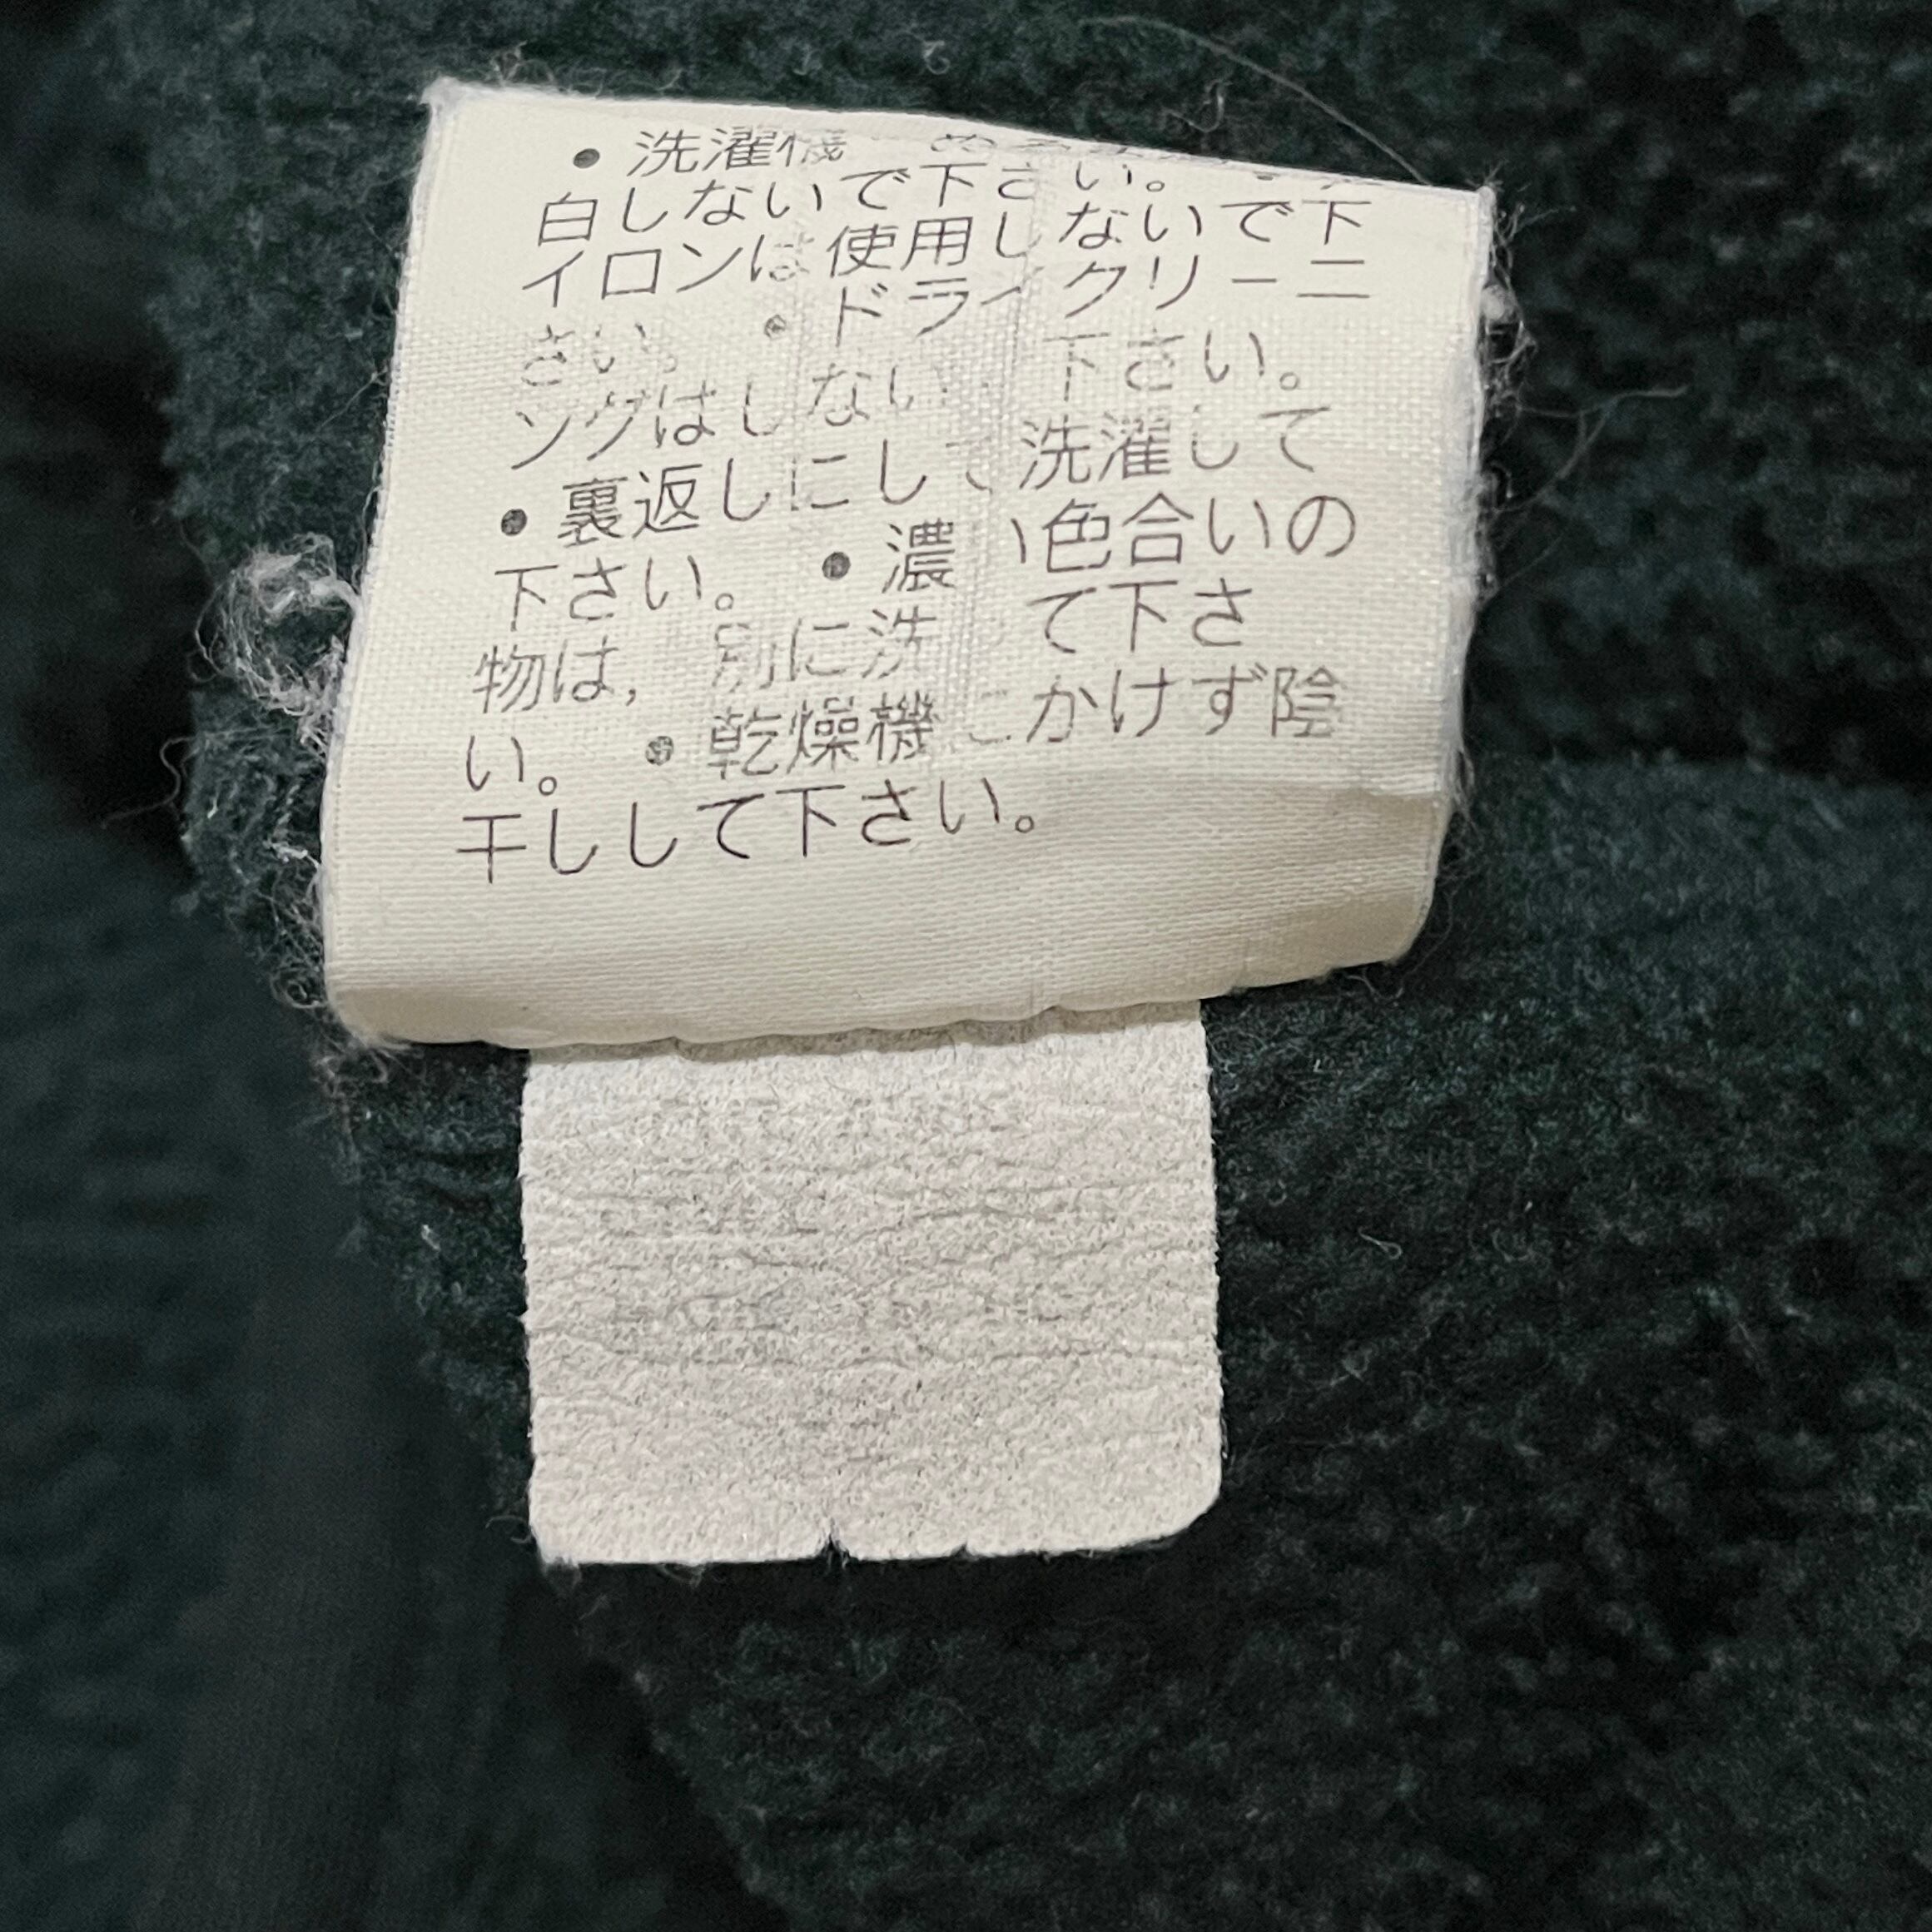 • 洗濯機
白しないで下さい。 •
イロンは使用しないで下
さい。 • ドライクリーニ
ングはしない 下さい。
• 裏返しにして洗濯して
下さい。 • 濃い色合いの
物は, 別に洗 て下さ
い。 • 乾燥機にかけず陰
干しして下さい。